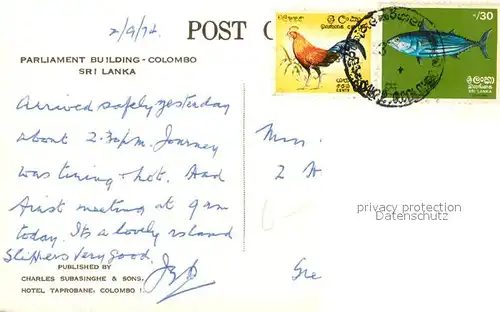 2/9/74.
POST C
PARLIAMENT BUILDING - COLOMBO
SRI LANKA
Arrived safely yesterday
about 2.30pm. Journey
was tiring & hot. Had
first meeting at 9 am
today. It's a lovely island
Slippers very good.
PUBLISHED BY
CHARLES SUBASINGHE & SONS,
HOTEL TAPROBANE, COLOMBO 1.
ශ්‍රී ලංකා
CENTS
-/30
ශ්‍රී ලංකා
இலங்கை
SRI LANKA
2
privacy protection
Datenschutz